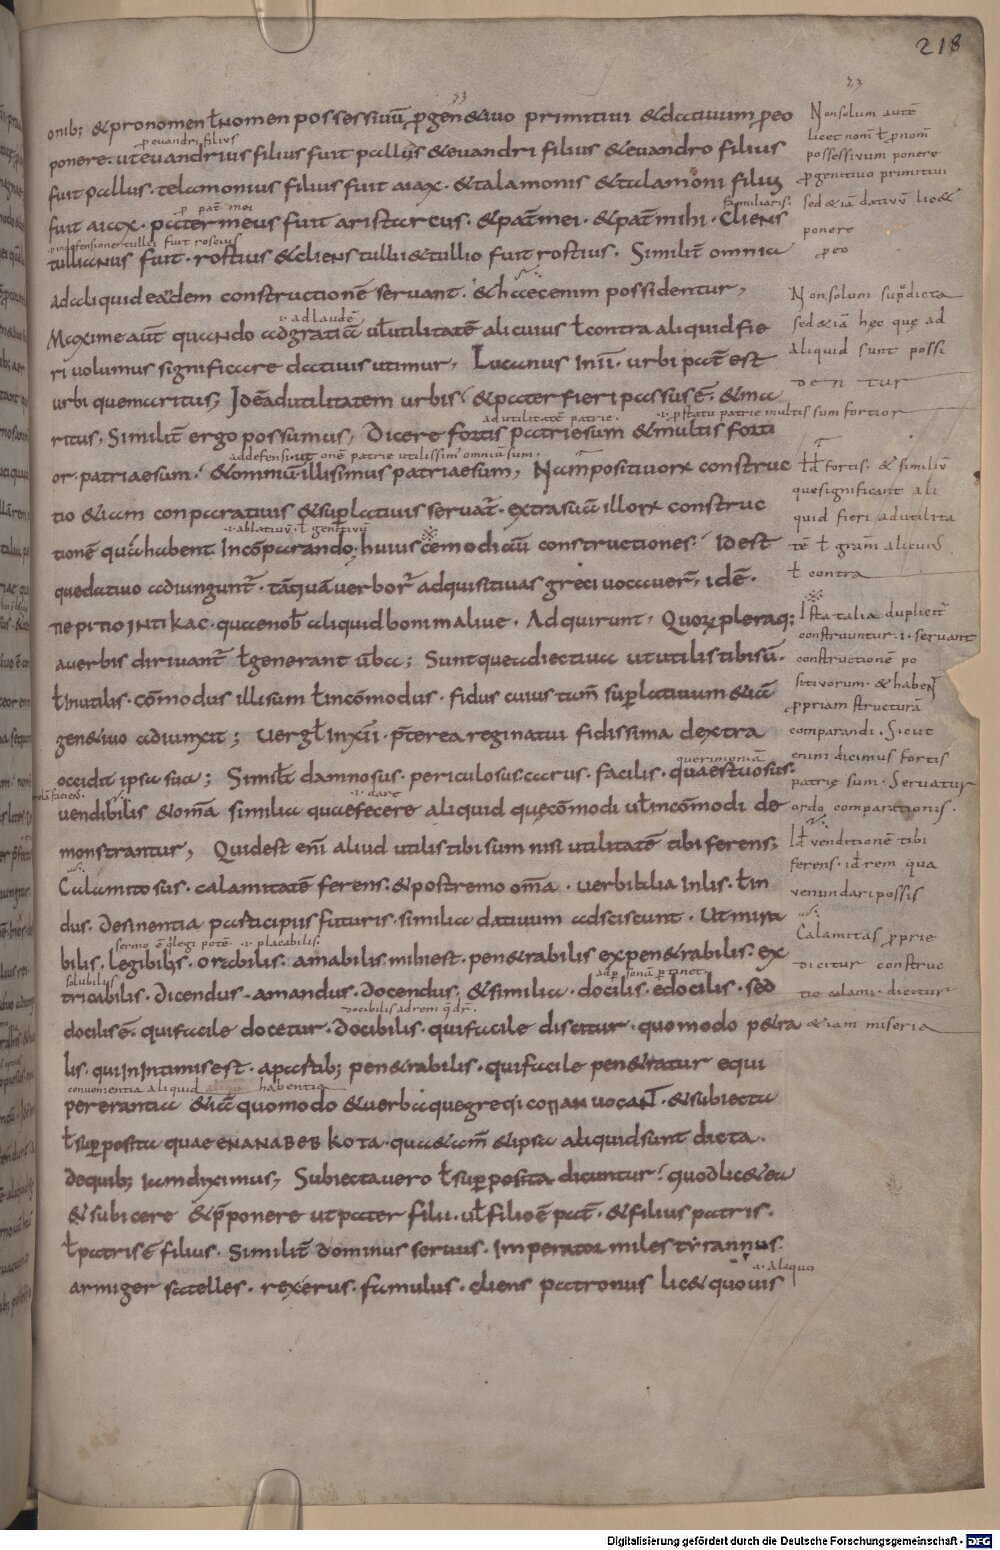 218
onib; & pronomen ł nomen possessiuū ꝓ gen&iuo primitiui & datiuum ꝓeo
ꝑ euandri filius
ponere. ut euandrius filius fuit pallas & euandri filius & euandro filius
fuit pallus. telamonius filius fuit aiax. & talamonis & talamoni filius
ꝓ pat̄ mei
familiaris:
fuit aiax. pater meus fuit aristarcus. & pat̄ mei. & pat̄ mihi. Cliens
defensione tullii fuit roscius
tullianus fuit. rostius & cliens tullii & tullio fuit rostius. Similit̄ omnia
ad aliquid eadem constructionē seruant. & haec enim possidentur,
.i. ad laudē
Maxime aut̄ quando ad gratiā ul̄ utilitatē alicuius ł contra aliquid fie
ri uolumus significare datiuis utimur, Lucanus in ii. urbi pat̄ est
urbi quem aritus; Idē ad utilitatem urbis. & pater fieri passus ē. & ma
ad utilitatē patrie.
.i. ꝓ statu patrie multis sum fortior
ritus, Similit̄ ergo possumus, Dicere fortis patriae sum & multis forti
utilissim' omniū sum.
or. patriae sum. & omniū illisimus patriae sum, Nam positiuorꝝ construc
tio & iam conparatiuis & suꝑlatiuis seruat̄. extra suā illorꝝ construc
.i. ablatiuū. ł genitiuū
tionē quā habent in cōparando; huiuscemodi aū constructiones. Id est
que datiuo adiungunt̄. tāquā uerbor̄ adquisitiuas greci uocauer̄, idē.
ΠEPITIOINTIKAC. quae nob̄ aliquid boni maliue. Adquirunt, Quorꝝ pleraq;
a uerbis diriuant̄ ł generant ūba; Sunt que adiectiua ut utilis tibi sū.
ł inutilis. cōmodus illi sum ł incōmodus. fidus cuius tam̄ suꝑlatiuum & iā
gen&iuo adiunxit; uergl̄ in xii. p̄terea regina tui fidissima dextra
querimoniā
occidit ipsa sua; Similit̄ damnosus. periculosus. carus. facilis. quaestuosus.
.i. dare
uendibilis & om̄a similia quae fecere aliquid quę cōmodi ul̄ incōmodi de
monstrantur, Quid est eni aliud utilis tibi sum nisi utilitatē tibi ferens;
Calamitosus. calamitatē ferens. & postremo om̄a. uerbibilia in lis. ł in
dus. desinentia participiis futuris. similia datiuum adsciscunt. Ut mira
sermo ē q̄ legi potē. .i. placabilis.
bilis. legibilis. orabilis. amabilis mihi est. pen&rabilis expen&rabilis. ex
solubilis
tricabilis. Dicendus. amandus. Docendus. & similia. docilis. edocilis. sed
docibilis ad rem q̄dr̄.
docilis ē. qui facile docetur. Docibilis. qui facile discitur. quomodo p&ra
lis. qui in intimis est. apastib; pen&rabilis. qui facile pen&ratur equi
conuenientia aliquid habentia
pererantia & iā quomodo & uerba que greci uocaNT. & subiecta
ł suꝑposita quae ENANABEB KOTA. qua & am̄ & ipsa aliquid sunt dicta.
De quib; iam diximus; Subiecta uero ł suꝑposita dicuntur. quod lic& ea
& subicere & p̄ponere ut pater filii. ul̄ filio ē pat̄. & filius patris.
ł patris ē filius. Similit̄ dominus seruus. Imperator miles tyrannus.
.i. aliquo
armiger satelles. rex erus. famulus. cliens patronus lic& quouis
Non solum autē
licet nom̄ ł ꝓnom̄
possessiuum ponere
ꝓ genitiuo primitiui
sed & iā datiuū lic&
ponere
ꝓeo
Non solum sup̄dicta
sed & iā hęc quę ad
aliquid sunt possi
dentur
ł d̄ fortis. & similiū
que significant ali
quid fieri ad utilita
tē ł gram̄ alicuius
ł contra
Ista talia duplicit̄
construuntur .i. seruant
constructionē po
sitiuorum. & habent
ꝓpriam structurā
comparandi. Sicut
enim dicimus fortis
patrię sum. Seruatur
ordo comparationis.
ł d̄ uenditionē tibi
ferens. id̄ rem qua
uenundari possis
Calamitas ꝓprie
dicitur construc
tio calami. dicitur
& iam miseria